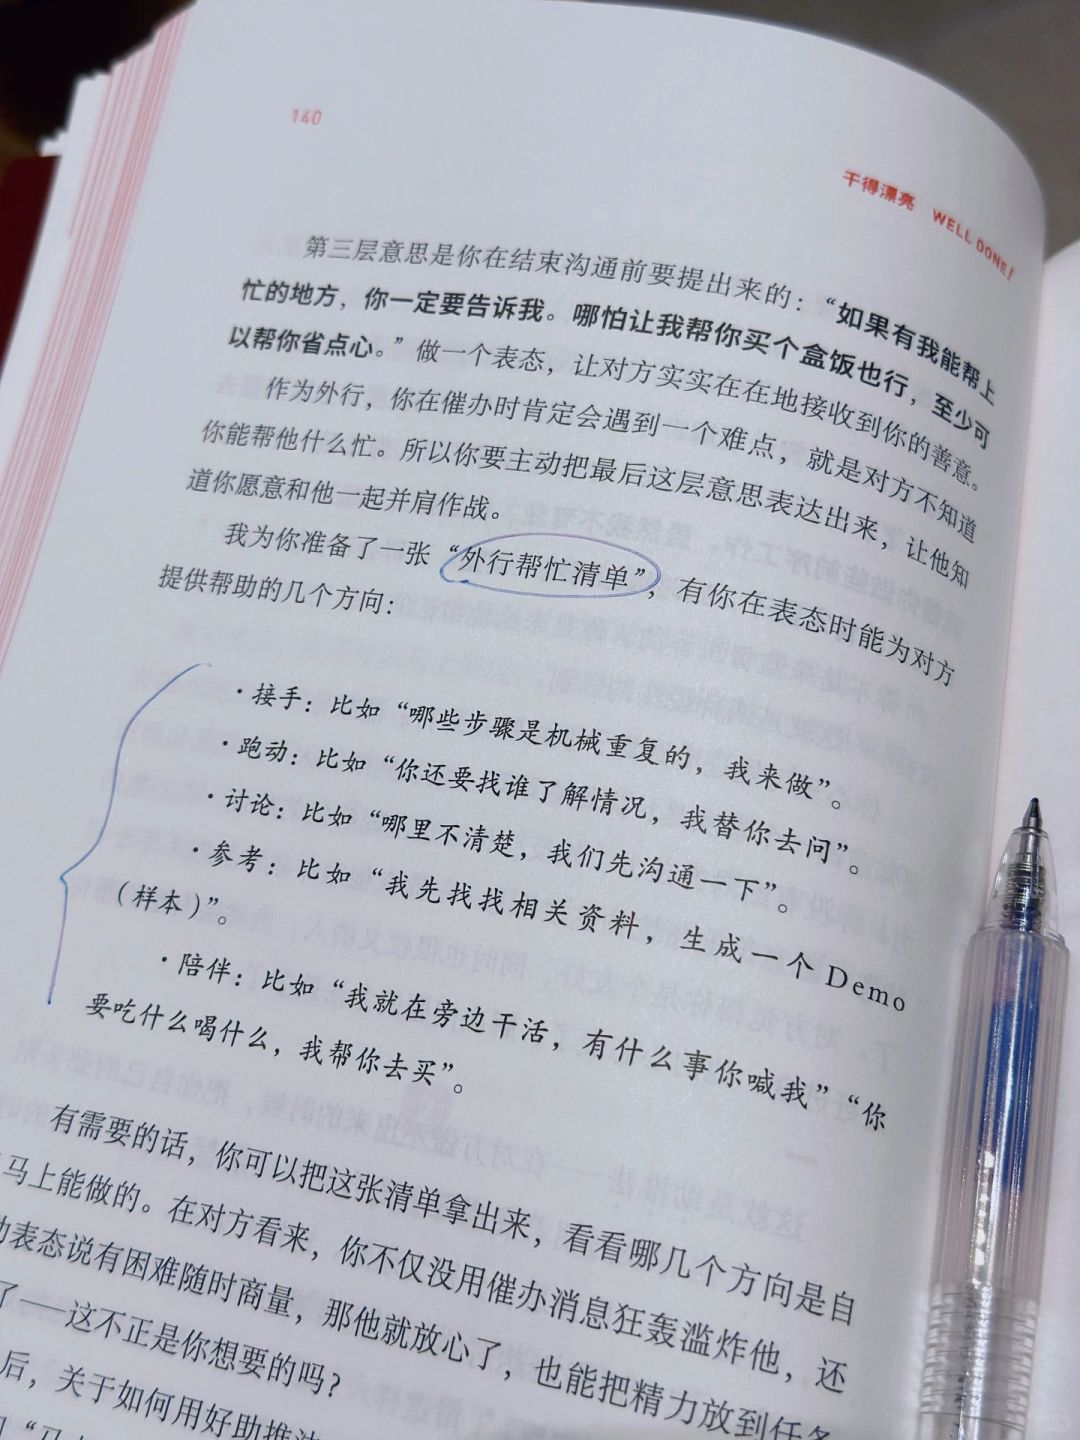 140
干得漂亮 WELL DONE!
第三层意思是你在结束沟通前要提出来的：“如果有我能帮上
忙的地方，你一定要告诉我。哪怕让我帮你买个盒饭也行，至少可
以帮你省点心。”做一个表态，让对方实实在在地接收到你的善意。
作为外行，你在催办时肯定会遇到一个难点，就是对方不知道
你能帮他什么忙。所以你要主动把最后这层意思表达出来，让他知
道你愿意和他一起并肩作战。
我为你准备了一张“外行帮忙清单”，有你在表态时能为对方
提供帮助的几个方向：
·接手：比如“哪些步骤是机械重复的，我来做”。
·跑动：比如“你还要找谁了解情况，我替你去问”。
·讨论：比如“哪里不清楚，我们先沟通一下”。
·参考：比如“我先找找相关资料，生成一个Demo
（样本）”。
·陪伴：比如“我就在旁边干活，有什么事你喊我”“你
要吃什么喝什么，我帮你去买”。
有需要的话，你可以把这张清单拿出来，看看哪几个方向是自
马上能做的。在对方看来，你不仅没用催办消息狂轰滥炸他，还
表态说有困难随时商量，那他就放心了，也能把精力放到任务
了——这不正是你想要的吗？
后，关于如何用好助推法